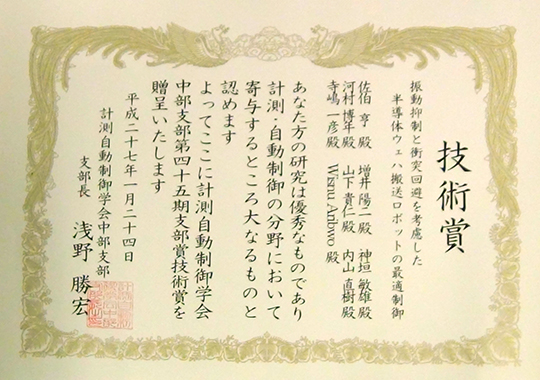 技術賞
振動抑制と衝突回避を考慮した
半導体ウェハ搬送ロボットの最適制御
佐伯 亨 殿 増井 陽一 殿 神垣 敏雄 殿
河村 博年 殿 山下 貴仁 殿 内山 直樹 殿
寺嶋 一彦 殿 Wisnu Aribwo 殿
あなた方の研究は優秀なものであり
計測・自動制御の分野において
寄与するところ大なるものと
認めます
よってここに計測自動制御学会
中部支部第四十五期支部賞技術賞を
贈呈いたします
平成二十七年一月二十四日
計測自動制御学会中部支部
支部長 浅野 勝宏